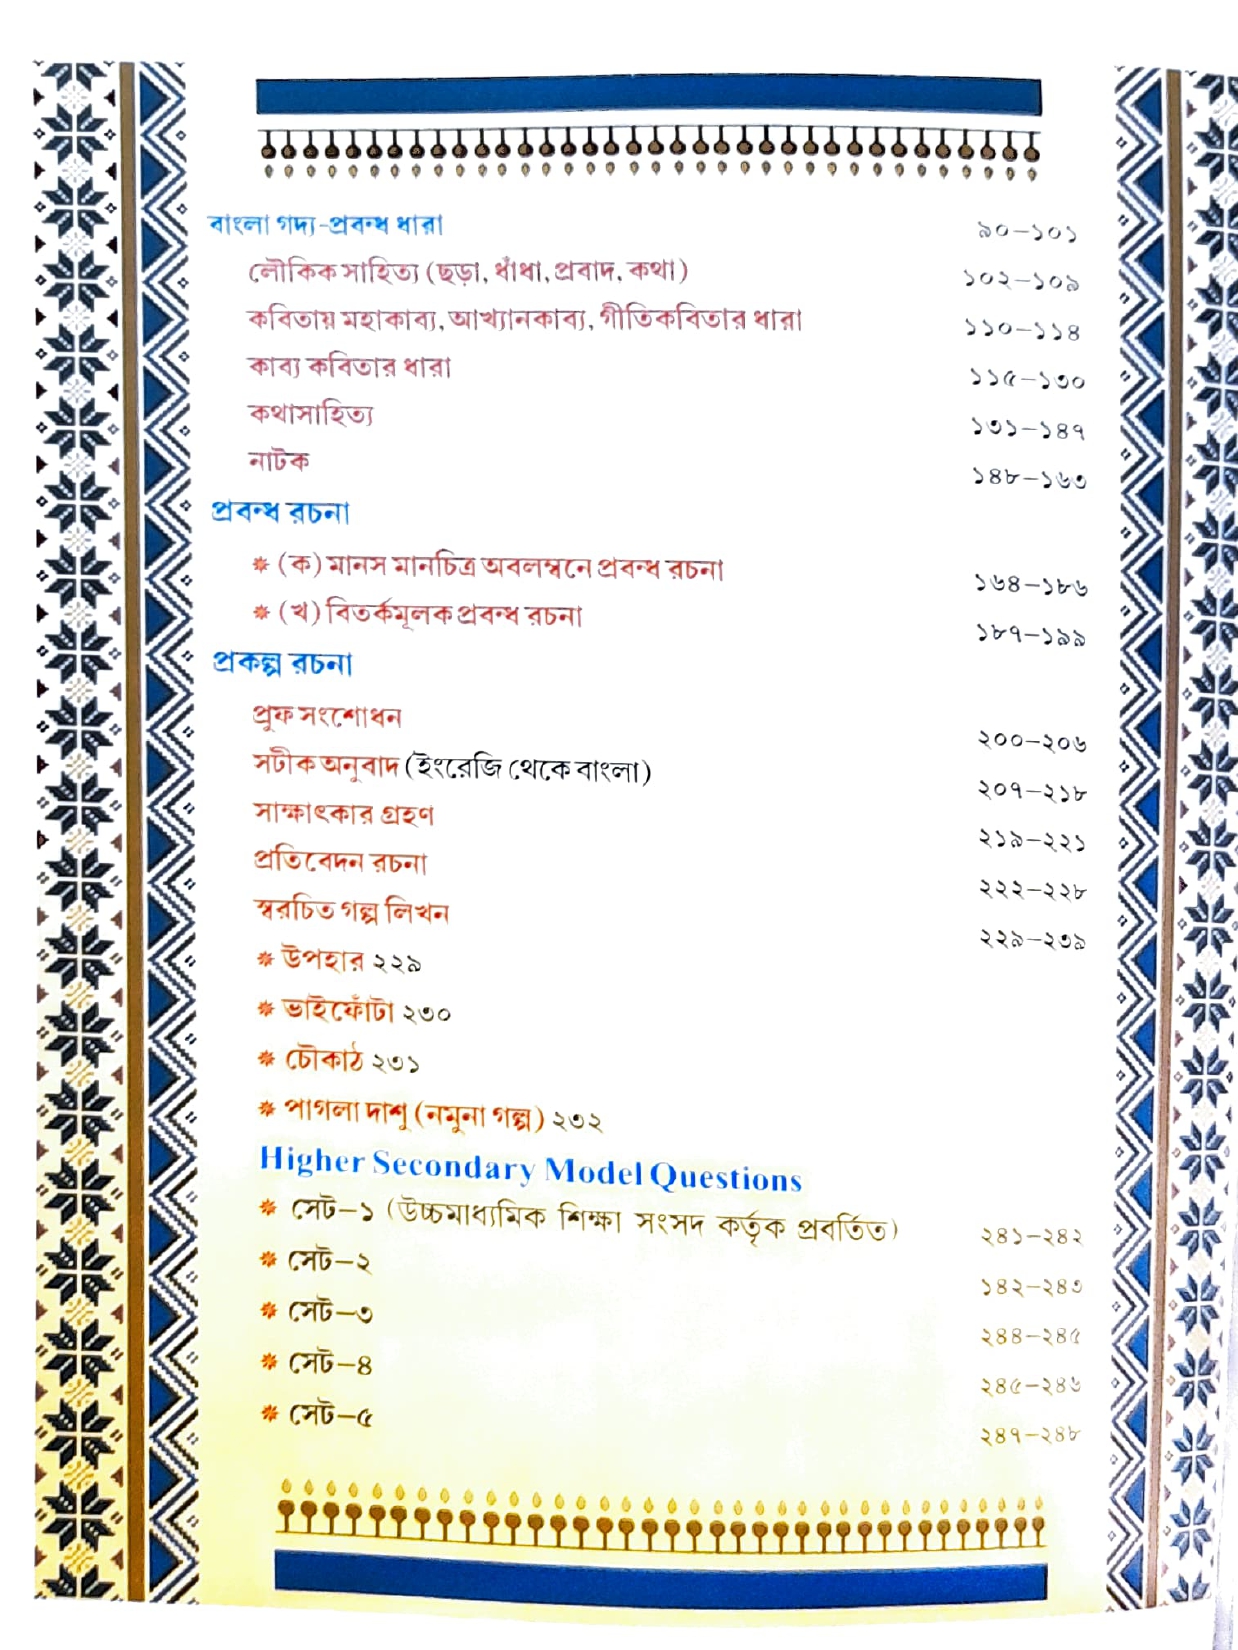 বাংলা গদ্য-প্রবন্ধ ধারা ৯০–১০১
লৌকিক সাহিত্য (ছড়া, ধাঁধা, প্রবাদ, কথা) ১০২–১০৯
কবিতায় মহাকাব্য, আখ্যানকাব্য, গীতিকবিতার ধারা ১১০–১১৪
কাব্য কবিতার ধারা ১১৫–১৩০
কথাসাহিত্য ১৩১–১৪৭
নাটক ১৪৮–১৬৩
প্রবন্ধ রচনা
* (ক) মানস মানচিত্র অবলম্বনে প্রবন্ধ রচনা ১৬৪–১৮৬
* (খ) বিতর্কমূলক প্রবন্ধ রচনা ১৮৭–১৯৯
প্রকল্প রচনা
প্রুফ সংশোধন ২০০–২০৬
সটীক অনুবাদ (ইংরেজি থেকে বাংলা) ২০৭–২১৮
সাক্ষাৎকার গ্রহণ ২১৯–২২১
প্রতিবেদন রচনা ২২২–২২৮
স্বরচিত গল্প লিখন ২২৯–২৩৯
* উপহার ২২৯
* ভাইফোঁটা ২৩০
* চৌকাঠ ২৩১
* পাগলা দাশু (নমুনা গল্প) ২৩২
Higher Secondary Model Questions
* সেট–১ (উচ্চমাধ্যমিক শিক্ষা সংসদ কর্তৃক প্রবর্তিত) ২৪১–২৪২
* সেট–২ ১৪২–২৪৩
* সেট–৩ ২৪৪–২৪৫
* সেট–৪ ২৪৫–২৪৬
* সেট–৫ ২৪৭–২৪৮